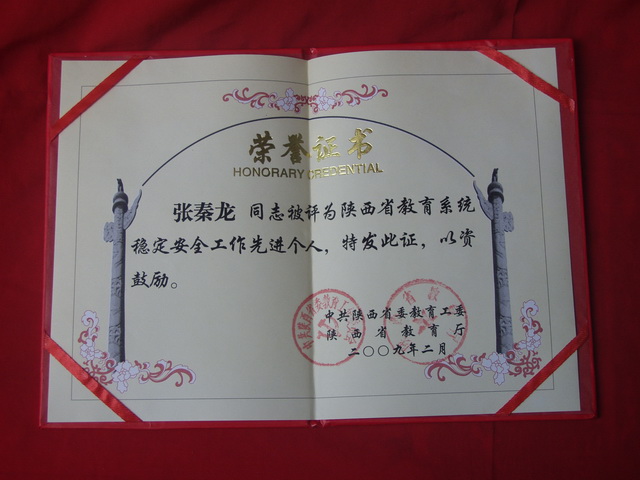 荣誉证书
HONORARY CREDENTIAL
张秦龙 同志被评为陕西省教育系统
稳定安全工作先进个人，特发此证，以资
鼓励。
中共陕西省委教育工委
陕西省教育厅
二〇〇九年二月